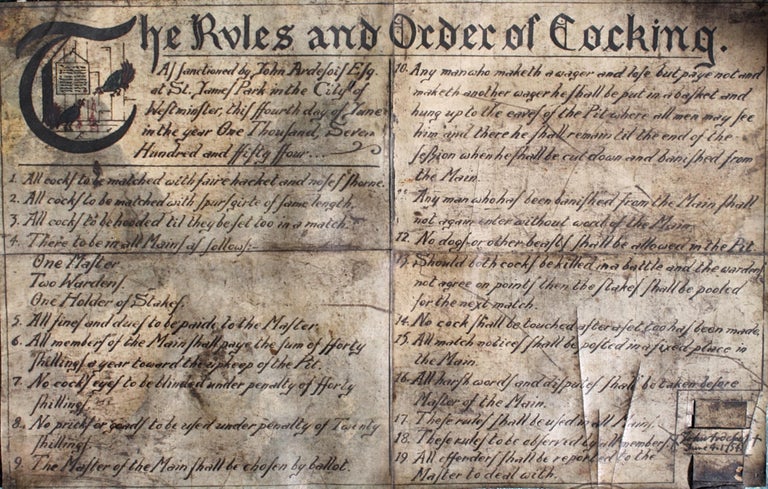 The Rvles and Order of Cocking.
As sanctioned by John Ardesois Esq.
at St. James Park in the City of
Westminster, this ffourth day of June
in the year One Thousand, Seven
Hundred and ffifty ffour...
1. All cocks to be matched with faire hacket and noses shorne.
2. All cocks to be matched with spursgirte of same length.
3. All cocks to be hooded til they be set too in a match.
4. There to be in all Mains as follows:-
One Master
Two Wardens.
One Holder of Stakes.
5. All fines and dues to be paide to the Master.
6. All members of the Main shall paye the sum of fforty
shillings a year toward the upkeep of the Pit.
7. No cocks eyes to be blinded under penalty of fforty
shillings.
8. No pricks or goads to be used under penalty of Twenty
shillings.
9. The Master of the Main shall be chosen by ballot.
10. Any man who maketh a wager and lose but paye not and
maketh another wager he shall be put in a basket and
hung up to the eaves of the Pit where all men may see
him and there he shall remain til the end of the
session when he shall be cut down and banished from
the Main.
11. Any man who has been banished from the Main shall
not again enter without word of the Main.
12. No dogs or other beasts shall be allowed in the Pit.
13. Should both cocks be killed in a battle and the wardens
not agree on points then the stakes shall be pooled
for the next match.
14. No cock shall be touched after a set too has been made.
15. All match notices shall be posted in a fixed place in
the Main.
16. All harsh words and disputes shall be taken before
Master of the Main.
17. These rules shall be used in all Mains.
18. These rules to be observed by all members.
19 All offenders shall be reported to the
Master to deal with.
John Ardesoif
June 4. 1754